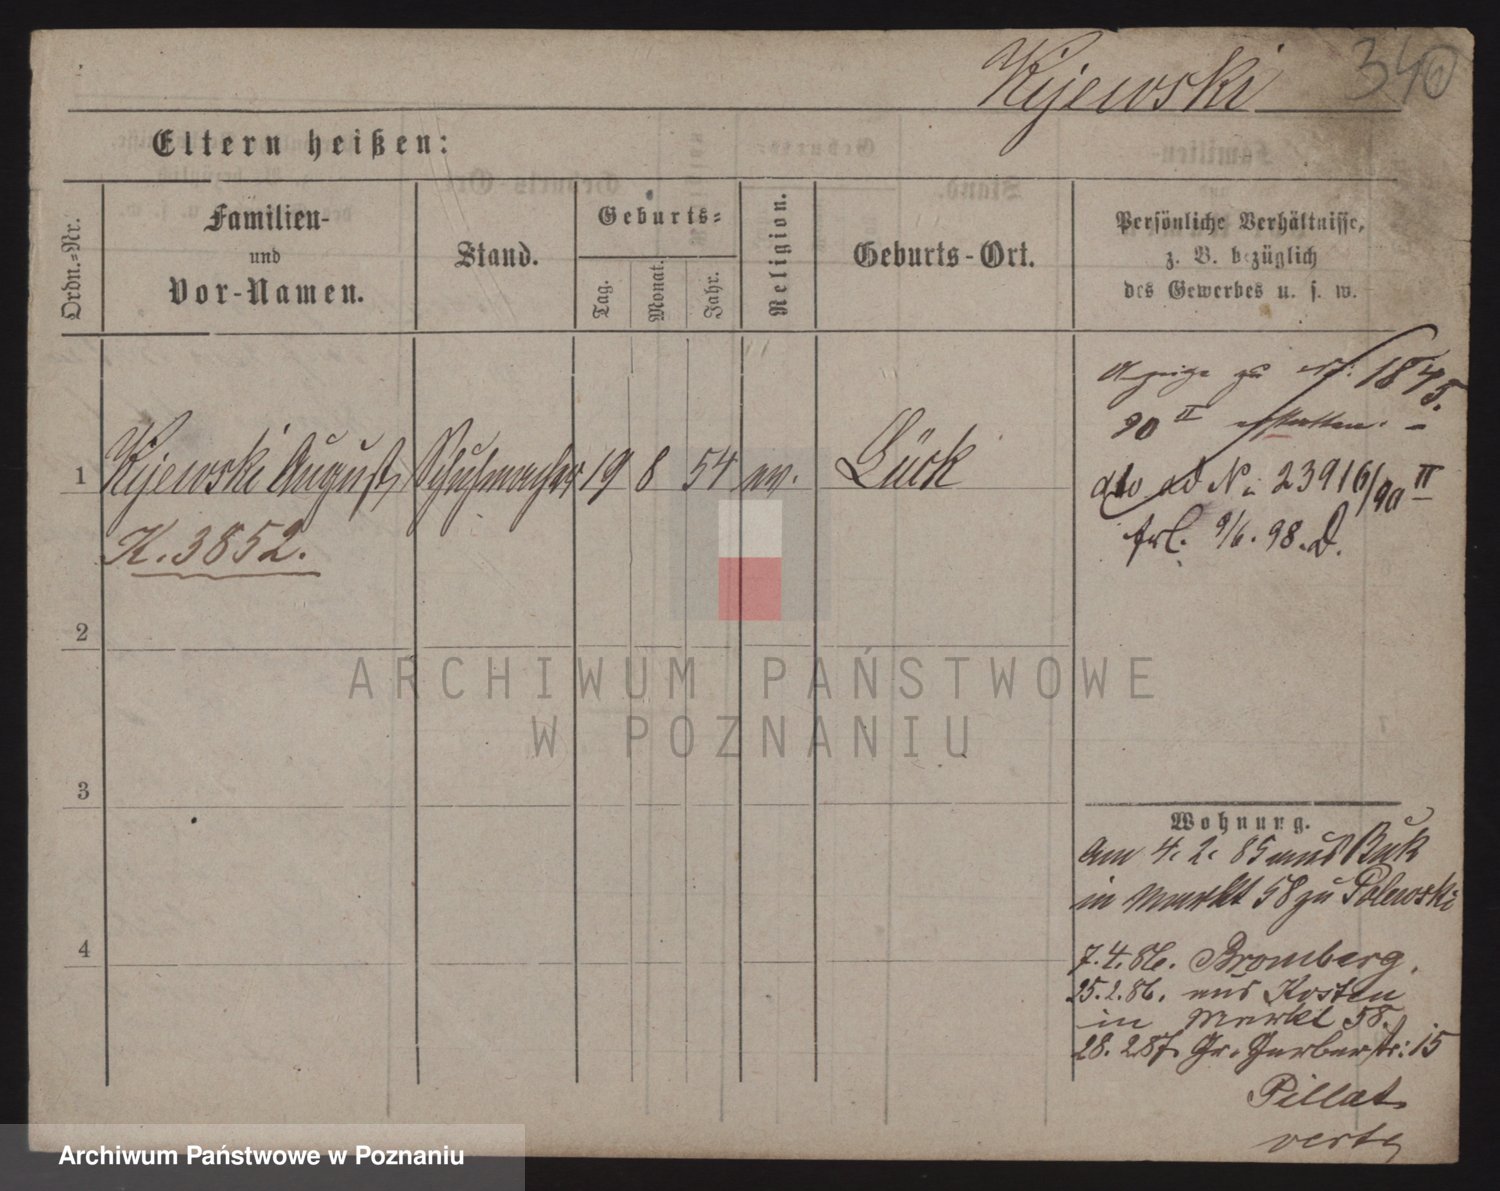 Kijewski 340
Eltern heißen:
Ordn.-Nr.
Familien-
und
Vor-Namen.
Stand.
Geburts-
Tag.
Monat.
Jahr.
Religion.
Geburts-Ort.
Persönliche Verhältnisse,
z. B. bezüglich
des Gewerbes u. s. w.
Anzeige zu 1875.
90 II erstatten.
1 Kijewski August Schuhmacher 19 8 54 ev. Lück
K. 3852.
ad No 23916/90 II
frl. 9/6. 98. D.
2
3
4
ARCHIWUM PAŃSTWOWE
W POZNANIU
Wohnung.
am 4. 2. 85 aus Buk
in Markt 58 zu Polewski
7. 4. 86. Bromberg.
25. 2. 86. aus Kosten
in Markt 58.
28. 2 87. Gr. Gerberstr: 15
Pillat
verte
Archiwum Państwowe w Poznaniu